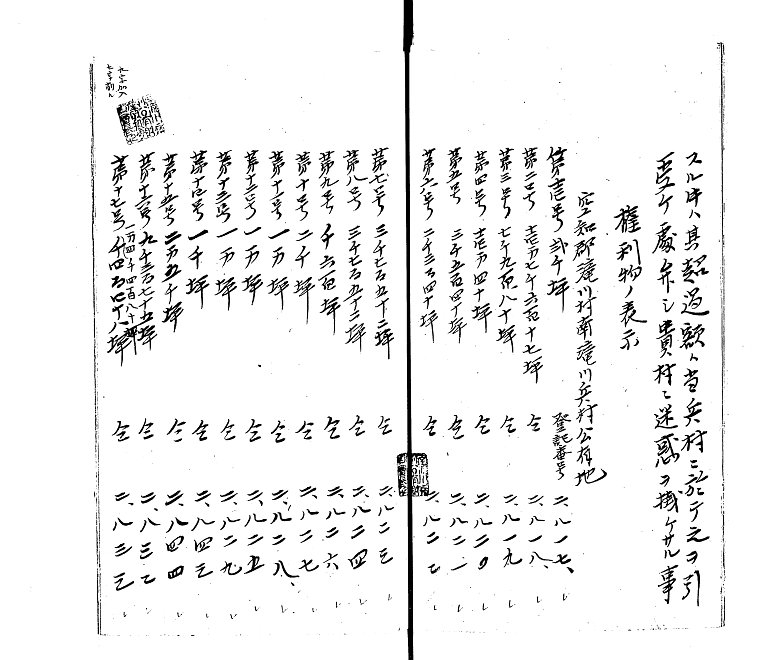 スル時ハ其超過額ハ当兵村ニ於テ之ヲ引
受ケ處弁シ貴村ニ迷惑ヲ掛ケサル事
権利物ノ表示
空知郡滝川村南滝川兵村公有地
第壱号 弐千坪 登記番号 二、八一七、
第二号 壱万七千六百十七坪 仝 二、八一八、
第三号 七千九百八十坪 仝 二、八一九
第四号 壱万四十坪 仝 二、八二〇
第五号 三千五百四十坪 仝 二、八二一
第六号 二千三百四十坪 仝 二、八二二
第七号 三千七百五十二坪 仝 二、八二三
第八号 三千七百五十二坪 仝 二、八二四
第九号 千六百坪 仝 二、八二六
第十号 二千坪 仝 二、八二七
第十一号 一万坪 仝 二、八二八、
第十二号 一万坪 仝 二、八二五
第十三号 一万坪 仝 二、八二九
第十四号 一千坪 仝 二、八四三
第十五号 二万五千坪 仝 二、八四四
第十六号 九千三百七十五坪 仝 二、八三二
第十七号 一万四千四百八十坪 仝 二、八三三
七字加入
七字削ル